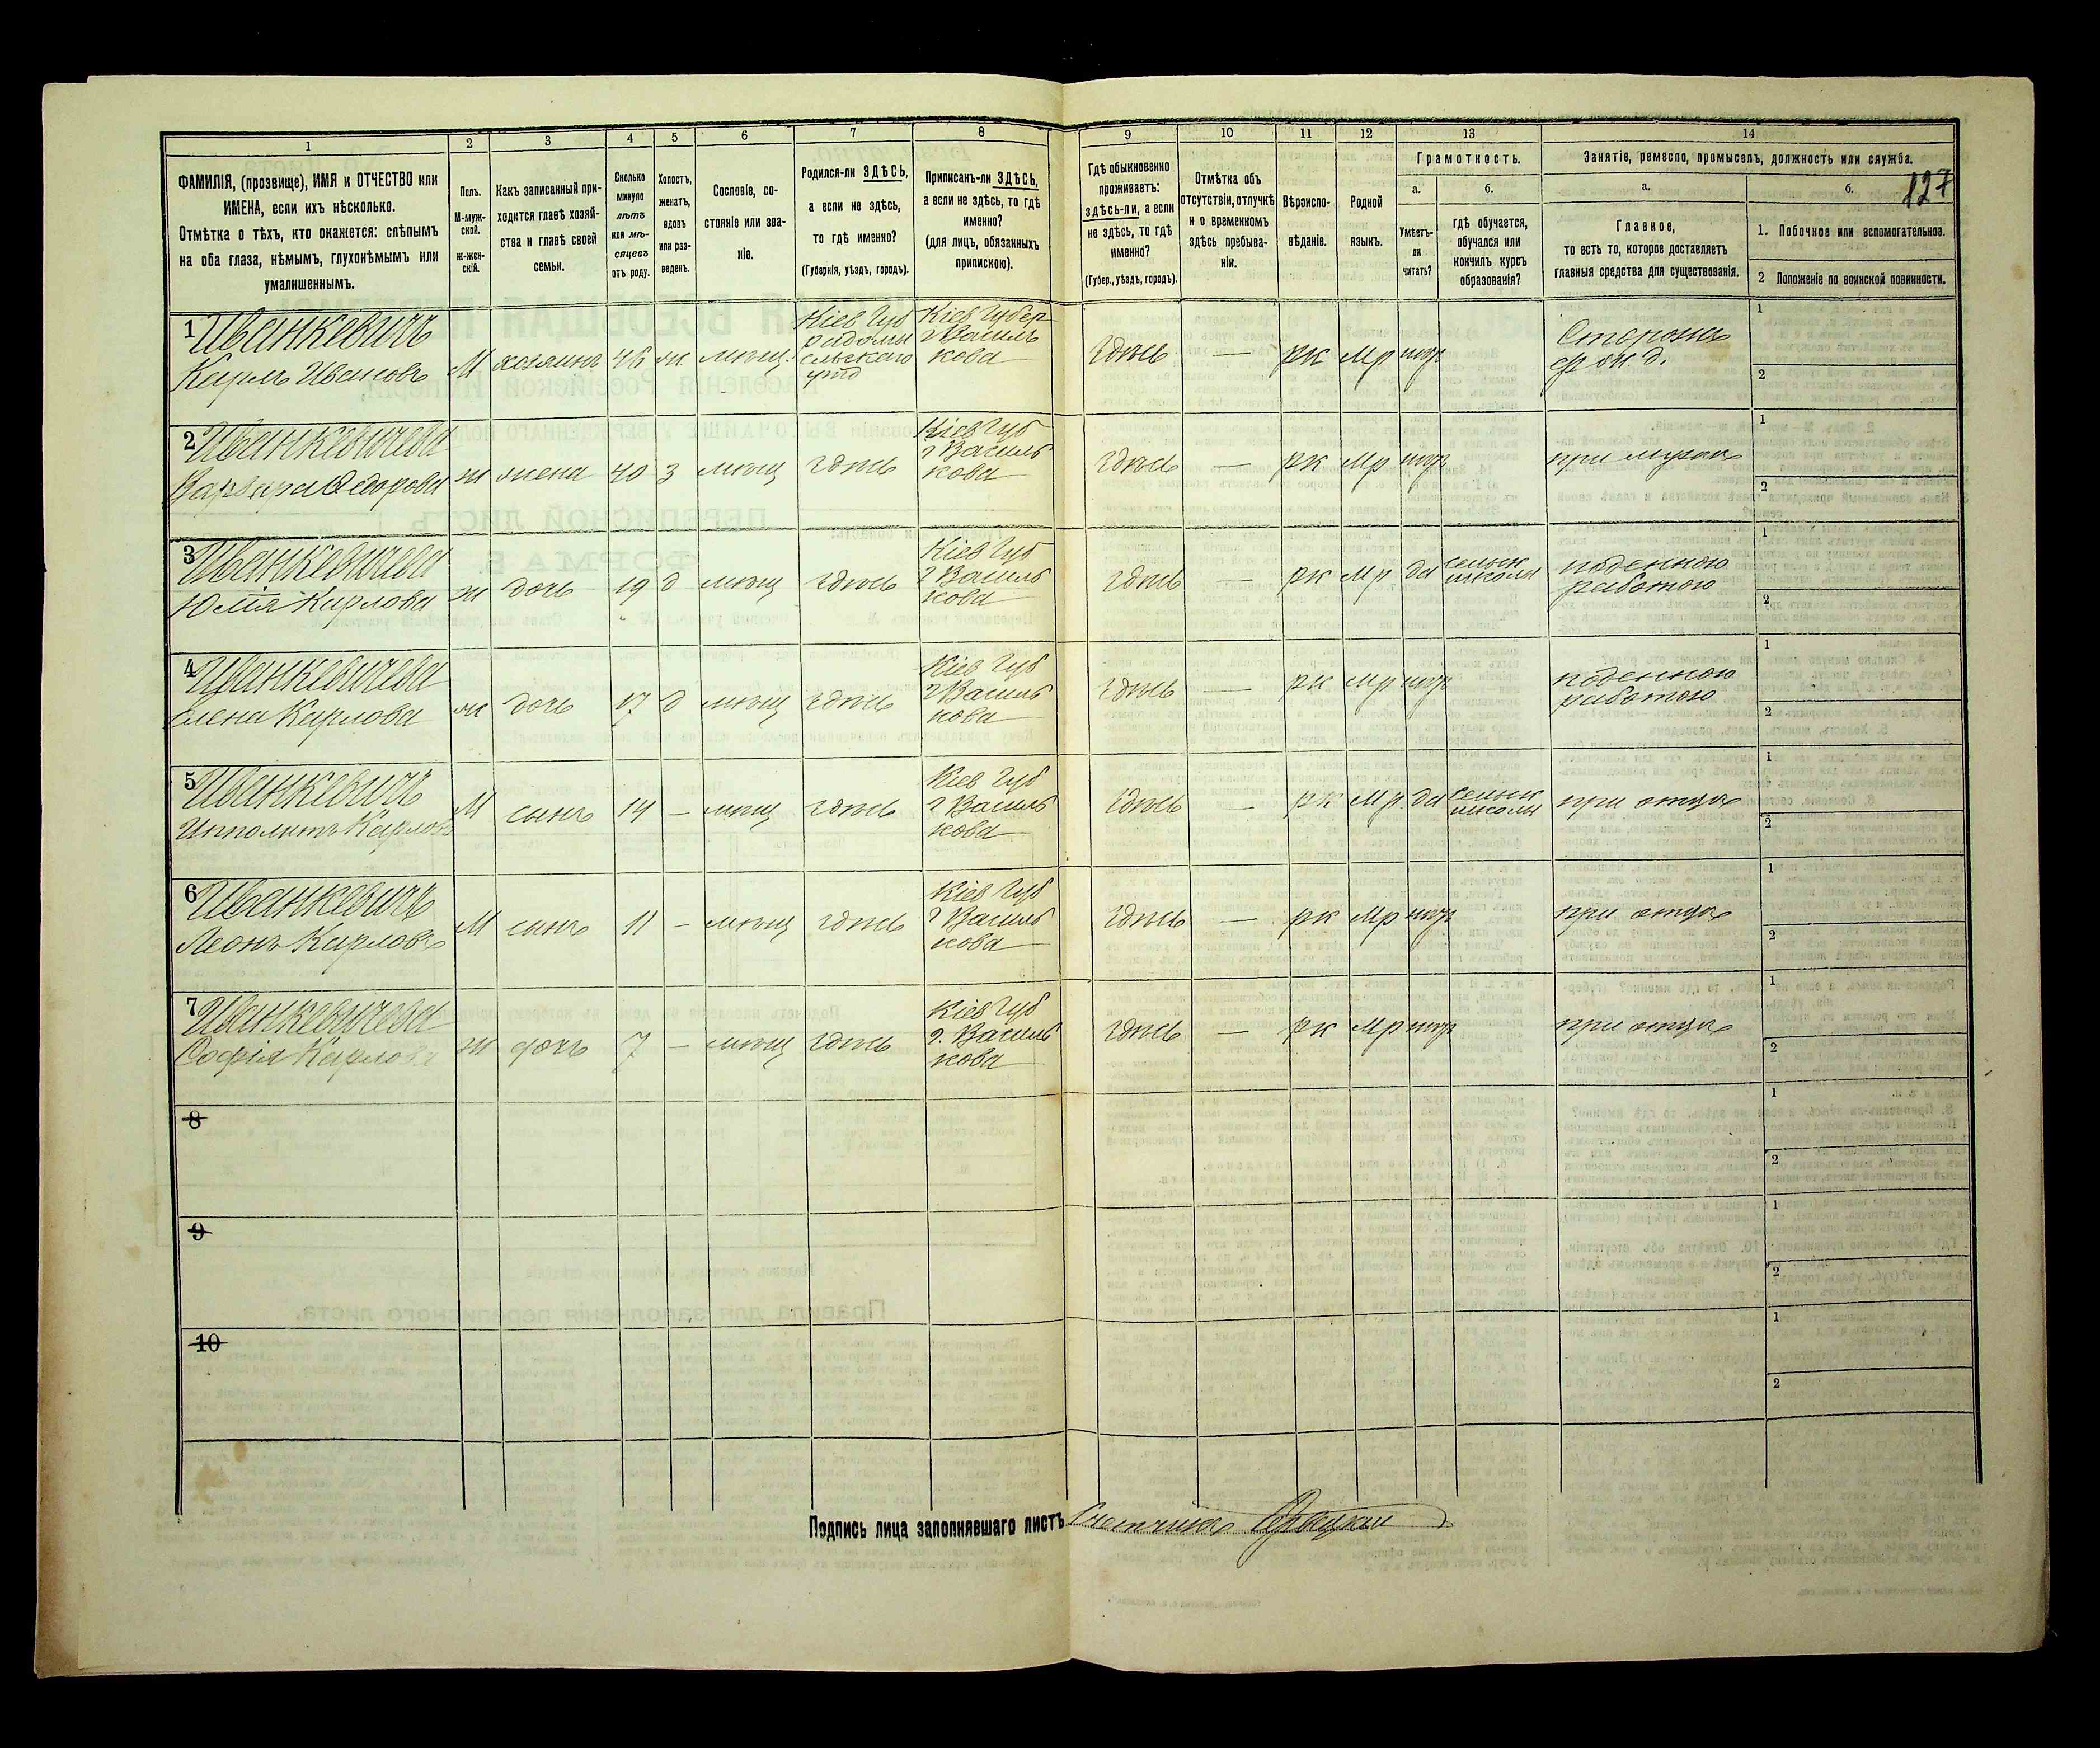 127
1
ФАМИЛІЯ, (прозвище), ИМЯ и ОТЧЕСТВО или
ИМЕНА, если ихъ нѣсколько.
Отмѣтка о тѣхъ, кто окажется: слѣпымъ
на оба глаза, нѣмымъ, глухонѣмымъ или
умалишеннымъ.
2
Полъ.
М-муж-
ской.
ж-жен-
скій.
3
Какъ записанный при-
ходится главѣ хозяй-
ства и главѣ своей
семьи.
4
Сколько
минуло
лѣтъ
или мѣ-
сяцевъ
отъ роду.
5
Холостъ,
женатъ,
вдовъ
или раз-
веденъ.
6
Сословіе, со-
стояніе или зва-
ніе.
7
Родился-ли ЗДѢСЬ,
а если не здѣсь,
то гдѣ именно?
(Губернія, уѣздъ, городъ).
8
Приписанъ-ли ЗДѢСЬ,
а если не здѣсь, то гдѣ
именно?
(для лицъ, обязанныхъ
припискою).
9
Гдѣ обыкновенно
проживаетъ:
здѣсь-ли, а если
не здѣсь, то гдѣ
именно?
(Губер., уѣздъ, городъ).
10
Отмѣтка объ
отсутствіи, отлучкѣ
и о временномъ
здѣсь пребыва-
ніи.
11
Вѣроиспо-
вѣданіе.
12
Родной
языкъ.
13
Грамотность.
а.
Умѣетъ-
ли
читать?
б.
гдѣ обучается,
обучался или
кончилъ курсъ
образованія?
14
Занятіе, ремесло, промыселъ, должность или служба.
а.
Главное,
то есть то, которое доставляетъ
главныя средства для существованія.
б.
1. Побочное или вспомогательное.
2 Положеніе по воинской повинности.
1 Иванкевичъ
Карлъ Ивановъ
М хозяинъ 46 ж. мѣщ.
Кіев Губ
радомы
сльского
уѣзд
Кіев Губер
г Василь
кова
здѣсь — рк Мр нѣтъ
Сторожъ
ж. д.
1
2
2 Иванкевичева
Варвара Федорова
ж жена 40 З мѣщ здѣсь
Кіев Губ
г Василь
кова
здѣсь — рк Мр нѣтъ при мужѣ
1
2
3 Иванкевичева
Юлія Карлова
ж дочь 19 д мѣщ здѣсь
Кіев Губ
г Василь
кова
здѣсь — рк Мр да
сельск
школы
поденною
работою
1
2
4 Иванкевичева
Елена Карлова
ж дочь 17 д мѣщ здѣсь
Кіев Губ
г Василь
кова
здѣсь — рк Мр нѣтъ
поденною
работою
1
2
5 Иванкевичъ
Ипполитъ Карловъ
М сынъ 14 — мѣщ здѣсь
Кіев Губ
г Василь
кова
здѣсь — рк Мр да
сельск
школы
при отцѣ
1
2
6 Иванкевичъ
Леонъ Карловъ
М сынъ 11 — мѣщ здѣсь
Кіев Губ
г Василь
кова
здѣсь — рк Мр нѣтъ при отцѣ
1
2
7 Иванкевичева
Софія Карлова
ж дочь 7 — мѣщ здѣсь
Кіев Губ
г. Василь
кова
здѣсь — рк Мр нѣтъ при отцѣ
1
2
8
1
2
9
1
2
10
1
2
Подпись лица заполнявшаго листъ Счетчикъ